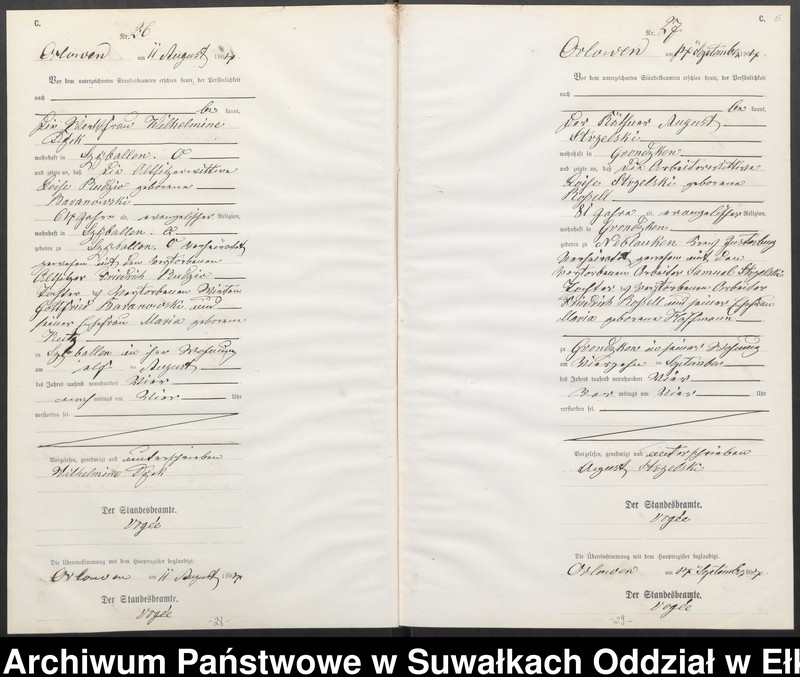 C.
Nr. 26
Orlowen am 11 August 1904.
Vor dem unterzeichneten Standesbeamten erschien heute, der Persönlichkeit
nach
be kannt,
die Wirthsfrau Wilhelmine
wohnhaft in Szeballen. O
und zeigte an, daß die Altsitzerwittwe
Loise Rudzio geborene
Baranowski
64 Jahre alt, evangelischer Religion,
wohnhaft in Szeballen. O
geboren zu Szeballen. O verheirathet
gewesen mit dem verstorbenen
Altsitzer Friedrich Rudzio
Tochter der verstorbenen Wirten
Gottfried Baranowski und
seiner Ehefrau Maria geborene
zu Szeballen in ihrer Wohnung
am elf ten August
des Jahres tausend neunhundert vier
nach mittags um vier Uhr
verstorben sei.
Vorgelesen, genehmigt und unterschrieben
Wilhelmine
Der Standesbeamte.
Vogée
Die Übereinstimmung mit dem Hauptregister beglaubigt.
Orlowen am 11 August 1904.
Der Standesbeamte.
Vogée
-28-
C.
Nr. 27.
Orlowen am 14 September 1904.
Vor dem unterzeichneten Standesbeamten erschien heute, der Persönlichkeit
nach
be kannt,
der Käthner August
Strzelski
wohnhaft in Grondzken
und zeigte an, daß die Arbeiterwittwe
Loise Strzelski geborene
Roßell
81 Jahre alt, evangelischer Religion,
wohnhaft in Grondzken
geboren zu Niblauken Kreis
verheirathet gewesen mit dem
verstorbenen Arbeiter Samuel Strzelski
Tochter der verstorbenen Arbeiter
Friedrich Roßell und seiner Ehefrau
Maria geborene Hoffmann
zu Grondzken in seiner Wohnung
am vierzehn ten September
des Jahres tausend neunhundert vier
vor mittags um vier Uhr
verstorben sei.
Vorgelesen, genehmigt und unterschrieben
August Strzelski
Der Standesbeamte.
Vogée
Die Übereinstimmung mit dem Hauptregister beglaubigt.
Orlowen am 14 September 1904.
Der Standesbeamte.
Vogée
-29-
Archiwum Państwowe w Suwałkach Oddział w Eł